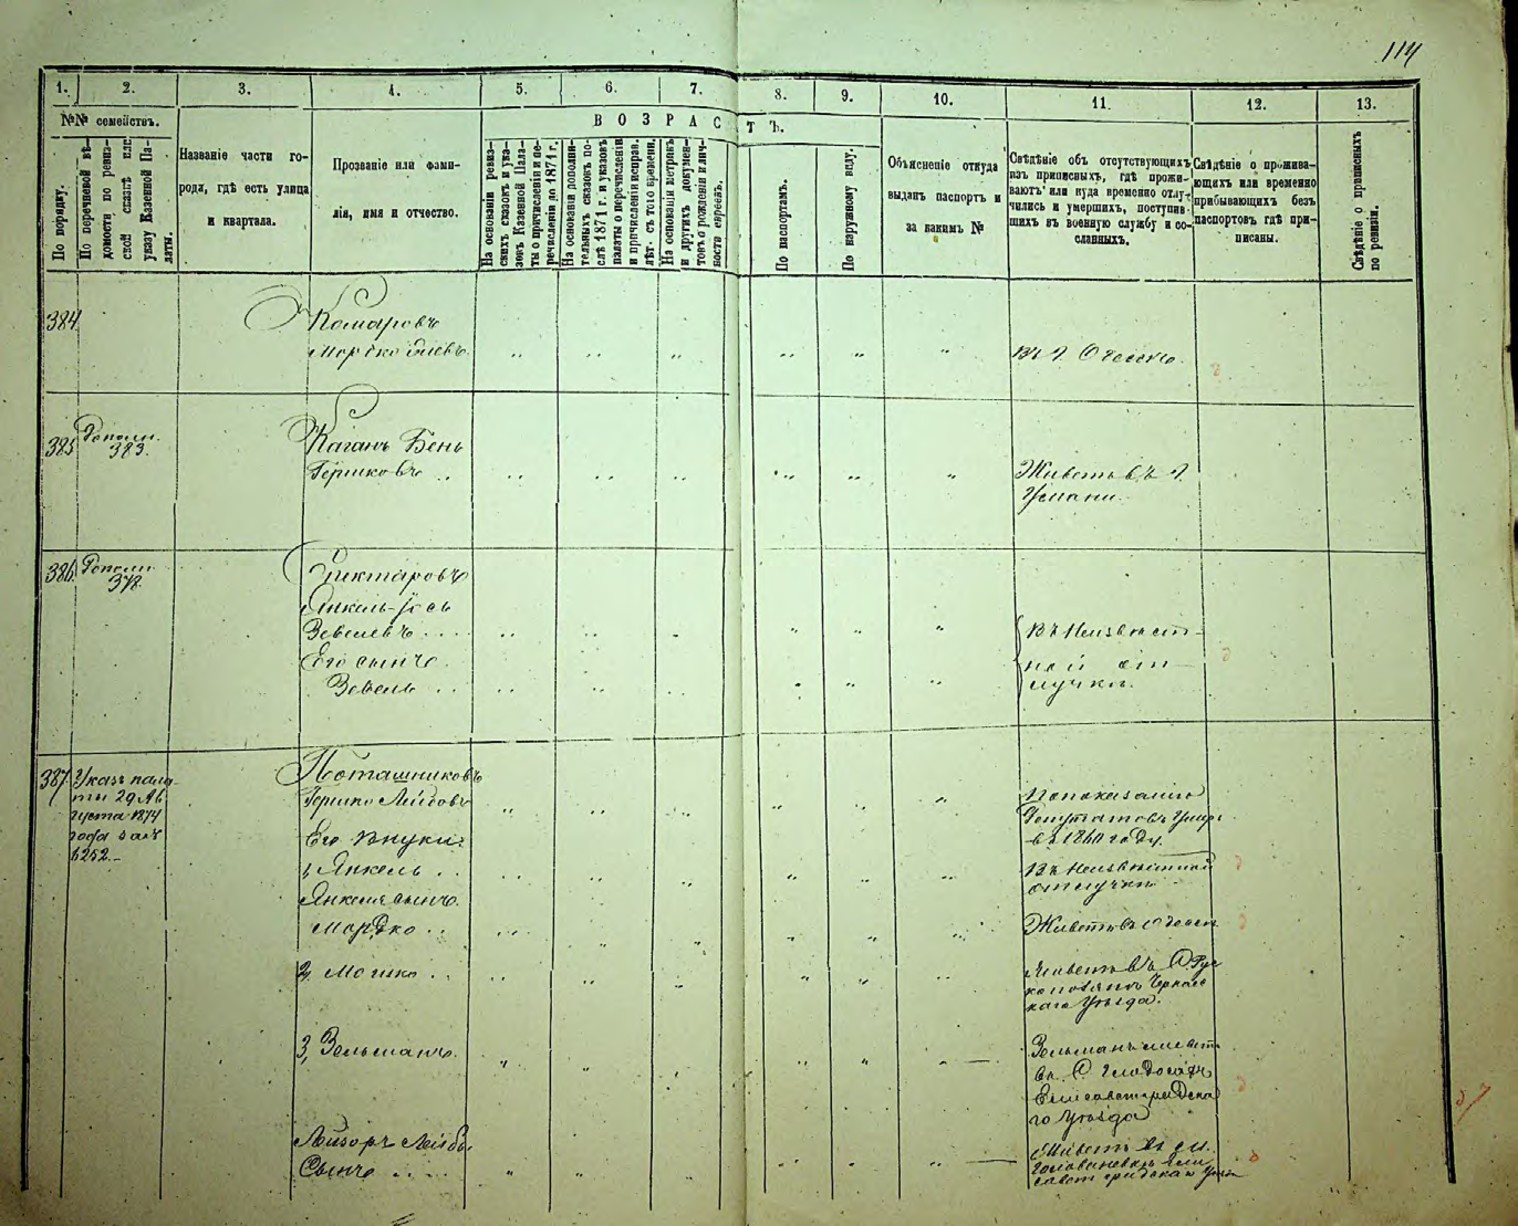 114
1. 2. 3. 4. 5. 6. 7. 8. 9. 10. 11. 12. 13.
№№ семействъ.
По порядку.
По перечневой вѣ-
домости по ревиз-
ской сказкѣ или
указу Казенной Па-
латы.
Названіе части го-
рода, гдѣ есть улица
и квартала.
Прозваніе или фами-
лія, имя и отчество.
ВОЗРАСТЪ.
На основаніи ревиз-
скихъ сказокъ и ука-
зовъ Казенной Пала-
ты о причисленіи и пе-
речисленіи до 1871 г.
На основаніи дополни-
тельныхъ сказокъ по-
слѣ 1871 г. и указовъ
палаты о перечисленіи
и причисленіи исправ.
лѣт. съ того времени.
На основаніи метрикъ
и другихъ докумен-
товъ о рожденіи и лич-
ности евреевъ.
По паспортамъ.
По наружному виду.
Объясненіе откуда
выданъ паспортъ и
за какимъ №
Свѣдѣніе объ отсутствующихъ
изъ приписныхъ, гдѣ прожи-
ваютъ или куда временно отлу-
чились и умершихъ, поступив-
шихъ въ военную службу и со-
сланныхъ.
Свѣдѣніе о прожива-
ющихъ или временно
прибывающихъ безъ
паспортовъ гдѣ при-
писаны.
Свѣдѣніе о прописныхъ
по ревизіи.
384
Комаровъ
Мордко
Въ г. Одессѣ.
385
Дополн.
383.
Каганъ Бень
Гершковъ
Живетъ въ г.
Умани.
386
Дополн.
378.
Янкель-Іось
Зевелевъ
Его сынъ
Зевель
Въ неизвѣст-
ной от-
лучкѣ.
387.
Указъ пала-
ты 29 Ав
густа 1874
года за №
6252.
Поташниковъ
Гершко Лейбовъ
Его внуки:
1, Янкель
Янкеля сынъ
Мордко
2, Мошко
3, Зельманъ
Лейзоръ Лейбы
Сынъ
По показанію
Депутатовъ умеръ
въ 1860 году.
Въ неизвѣстной
отлучкѣ
Живетъ въ Одессѣ
Живетъ въ С.
Уѣзда.
Зельманъ живетъ
въ С. Глодосахъ
Елисаветградска
го Уѣзда
Живетъ въ м.
Голованевскѣ Ели
саветградскаго